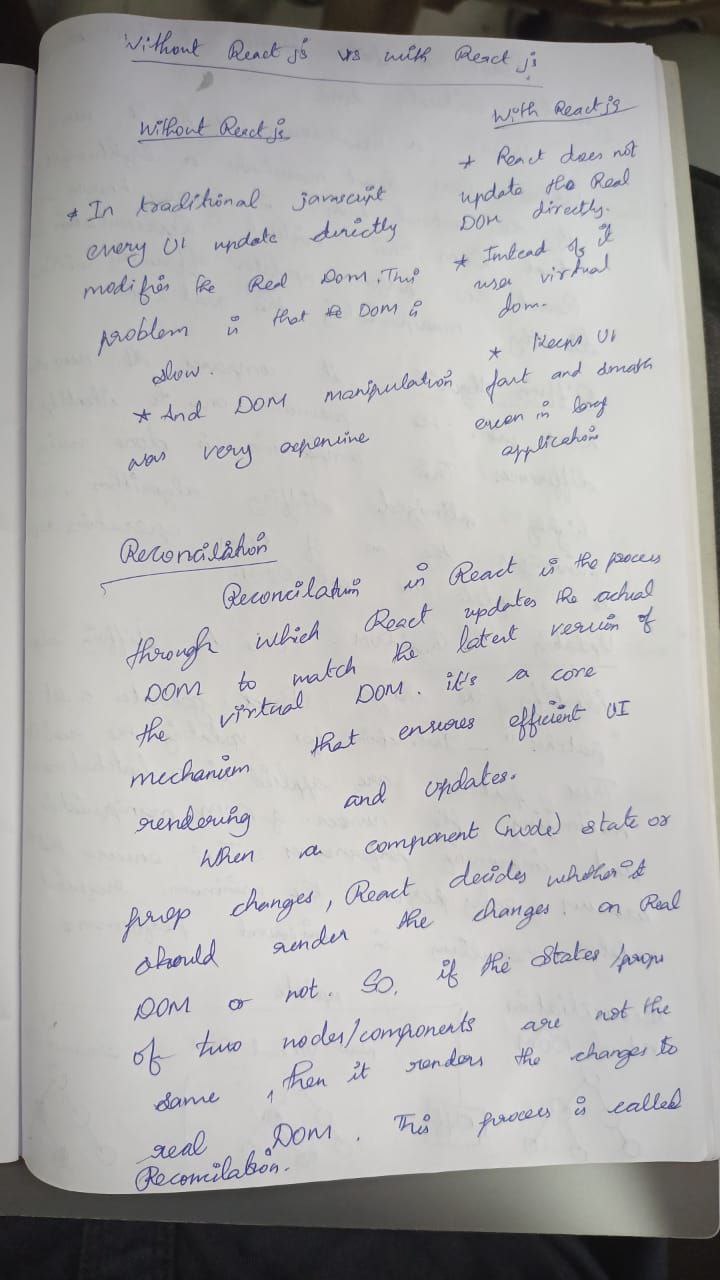 Without React js vs with React js
Without React js
* In traditional javascript
every UI update directly
modifies the Real DOM. This
problem is that the DOM is
slow.
* And DOM manipulation
was very expensive
With React js
* React does not
update the Real
DOM directly.
* Instead of it
uses virtual
dom.
* Keeps UI
fast and smooth
even in large
application
Reconcilation
Reconcilation in React is the process
through which React updates the actual
DOM to match the latest version of
the virtual DOM. it's a core
mechanism that ensures efficient UI
rendering and updates.
When a component (node) state or
prop changes, React decides whether it
should render the changes on Real
DOM or not. SO, if the States/props
of two nodes/components are not the
same, then it renders the changes to
real DOM. This process is called
Reconcilation.